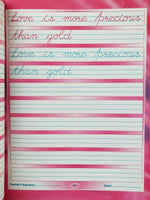 Love is more precious
than gold.
Love is more precious
than gold.
Teacher's Signature
Date: